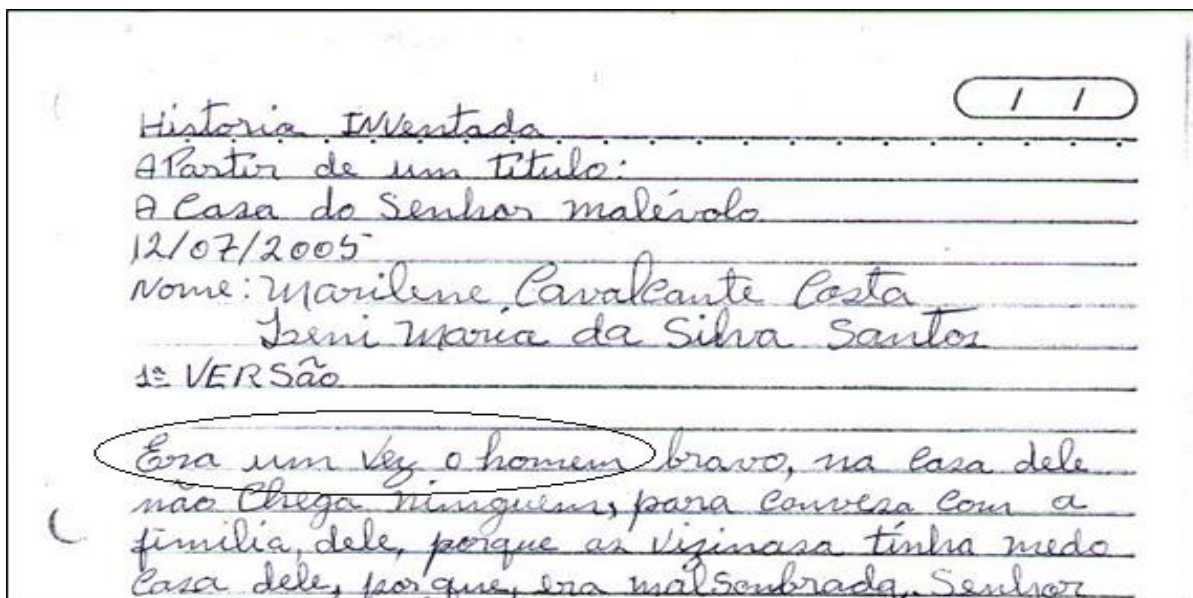 / /
Historia INVentada
A Partir de um Título:
A Casa do Senhor malévolo
12/07/2005
Nome: Marilene Cavalcante Costa
Izeni Maria da Silva Santos
1ª VERSão
Era um vez o homem bravo, na casa dele
não Chega ninguem, para conveza com a
fimilia, dele, porque as vizinasa tínha medo
casa dele, por que, era malsonbrada, Senhor